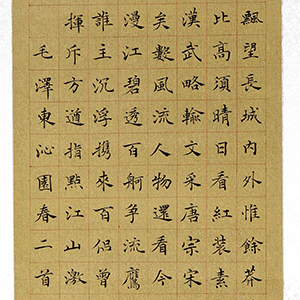 飄望長城内外惟餘莽
比高須晴日看紅裝素
漢武略輸文采唐宗宋
矣數風流人物還看今
漫江碧透百舸爭流鷹
誰主沉浮携來百侶曾
揮斥方遒指點江山激
毛澤東沁園春二首